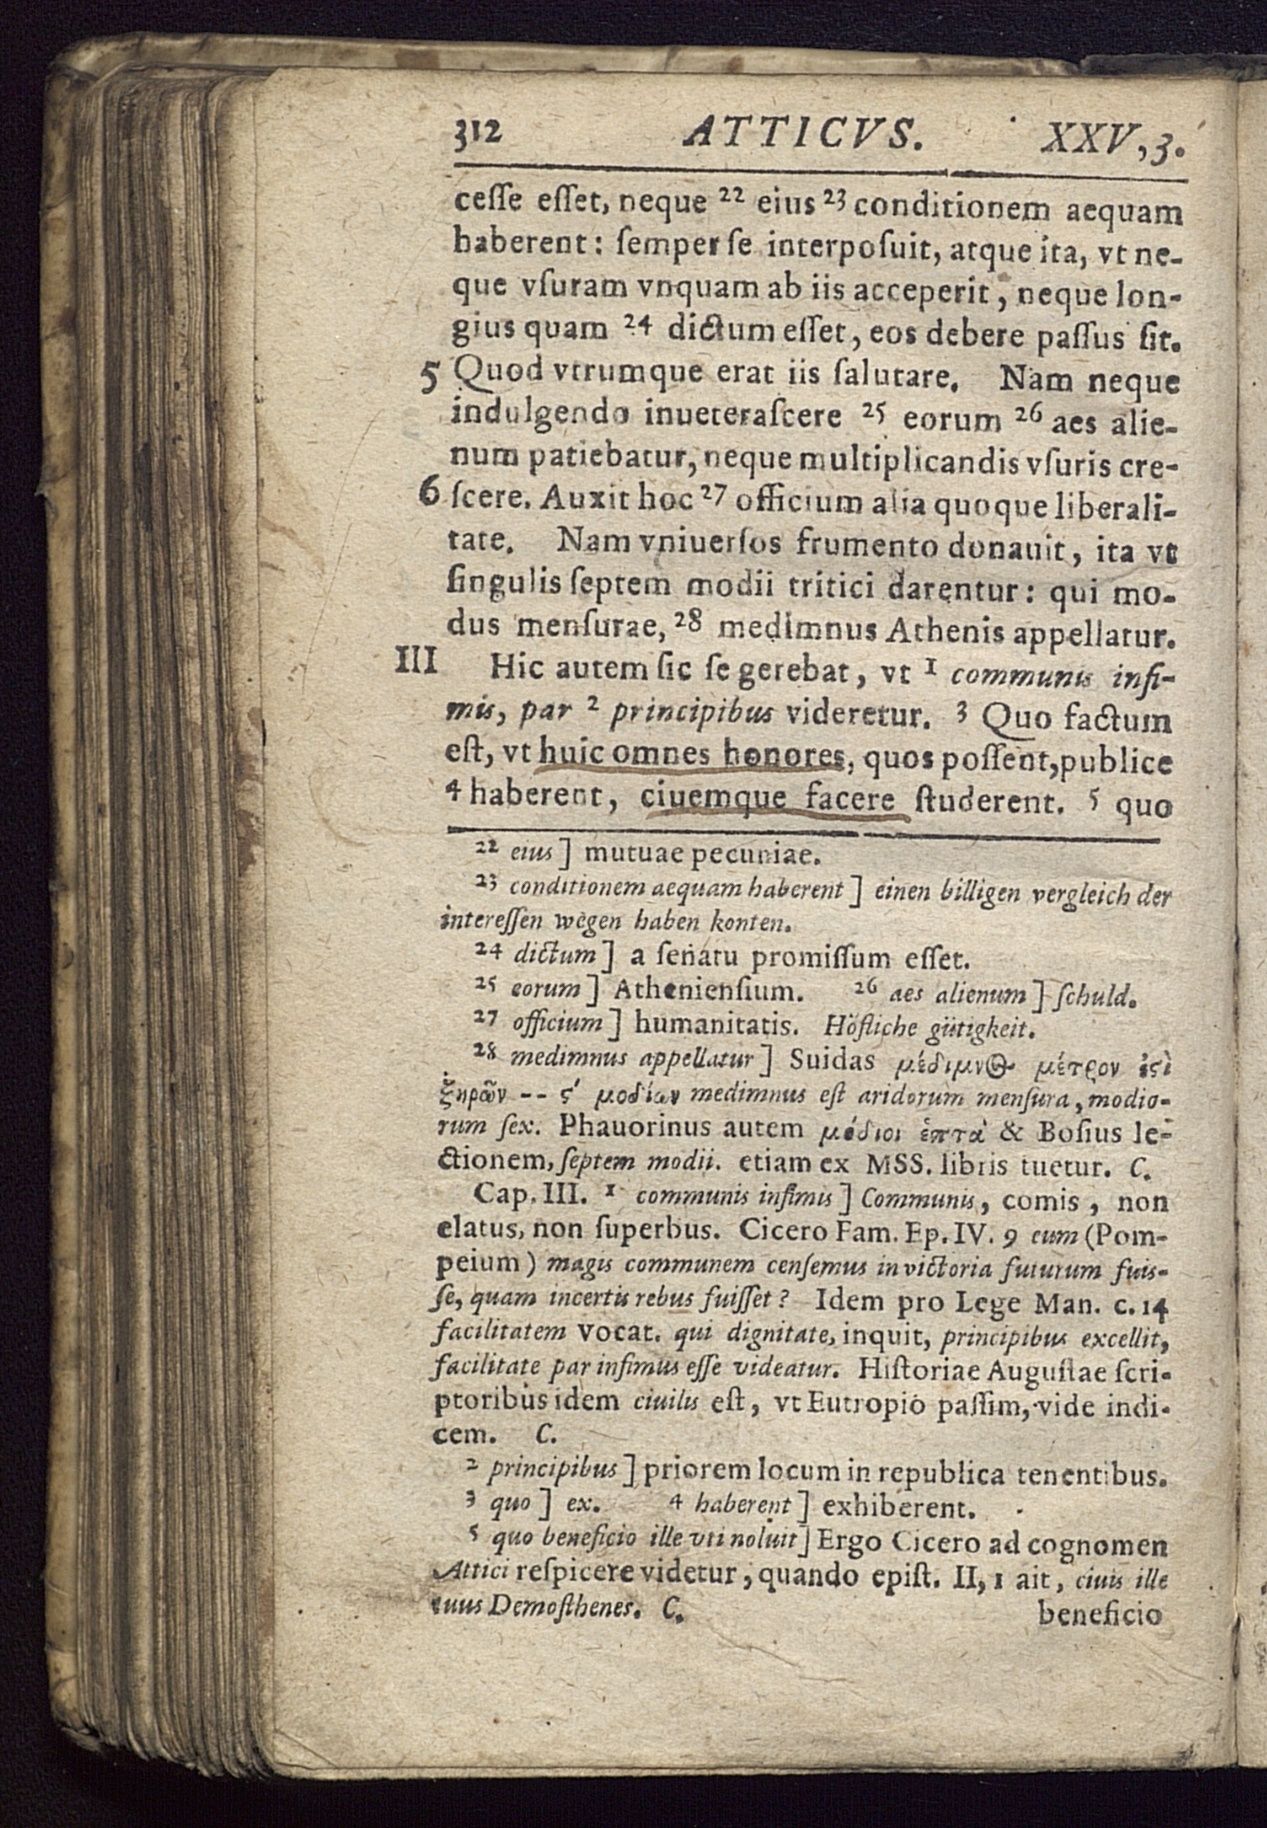 312 ATTICVS. XXV,3.
ceſſe eſſet, neque 22 eius 23 conditionem aequam
haberent: ſemper ſe interpoſuit, atque ita, vt ne-
que vſuram vnquam ab iis acceperit, neque lon-
gius quam 24 dictum eſſet, eos debere paſſus ſit.
5 Quod vtrumque erat iis ſalutare. Nam neque
indulgendo inueteraſcere 25 eorum 26 aes alie-
num patiebatur, neque multiplicandis vſuris cre-
6 ſcere. Auxit hoc 27 officium alia quoque liberali-
tate. Nam vniuerſos frumento donauit, ita vt
ſingulis ſeptem modii tritici darentur: qui mo-
dus menſurae, 28 medimnus Athenis appellatur.
III Hic autem ſic ſe gerebat, vt 1 communis infi-
mis, par 2 principibus videretur. 3 Quo factum
eſt, vt huic omnes honores, quos poſſent, publice
4 haberent, ciuemque facere ſtuderent. 5 quo
22 eius] mutuae pecuniae.
23 conditionem aequam haberent] einen billigen vergleich der
intereſſen wegen haben konten.
24 dictum] a ſenatu promiſſum eſſet.
25 eorum] Athenienſium. 26 aes alienum] ſchuld.
27 officium] humanitatis. Höfliche gütigkeit.
28 medimnus appellatur] Suidas μέδιμνος μέτρον ἐϛὶ
ξηρῶν -- ϛ΄ μοδίων medimnus eſt aridorum menſura, modio-
rum ſex. Phauorinus autem μόδιοι ἑπτὰ & Boſius le-
ctionem, ſeptem modii. etiam ex MSS. libris tuetur. C.
Cap. III. 1 communis infimis] Communis, comis, non
elatus, non ſuperbus. Cicero Fam. Ep. IV. 9 eum (Pom-
peium) magis communem cenſemus in victoria futurum fuiſ-
ſe, quam incertis rebus fuiſſet? Idem pro Lege Man. c. 14
facilitatem vocat. qui dignitate, inquit, principibus excellit,
facilitate par infimis eſſe videatur. Hiſtoriae Auguſtae ſcri-
ptoribus idem ciuilis eſt, vt Eutropio paſſim, vide indi-
cem. C.
2 principibus] priorem locum in republica tenentibus.
3 quo] ex. 4 haberent] exhiberent.
5 quo beneficio ille vti noluit] Ergo Cicero ad cognomen
Attici reſpicere videtur, quando epiſt. II, 1 ait, ciuis ille
tuus Demoſthenes. C. beneficio